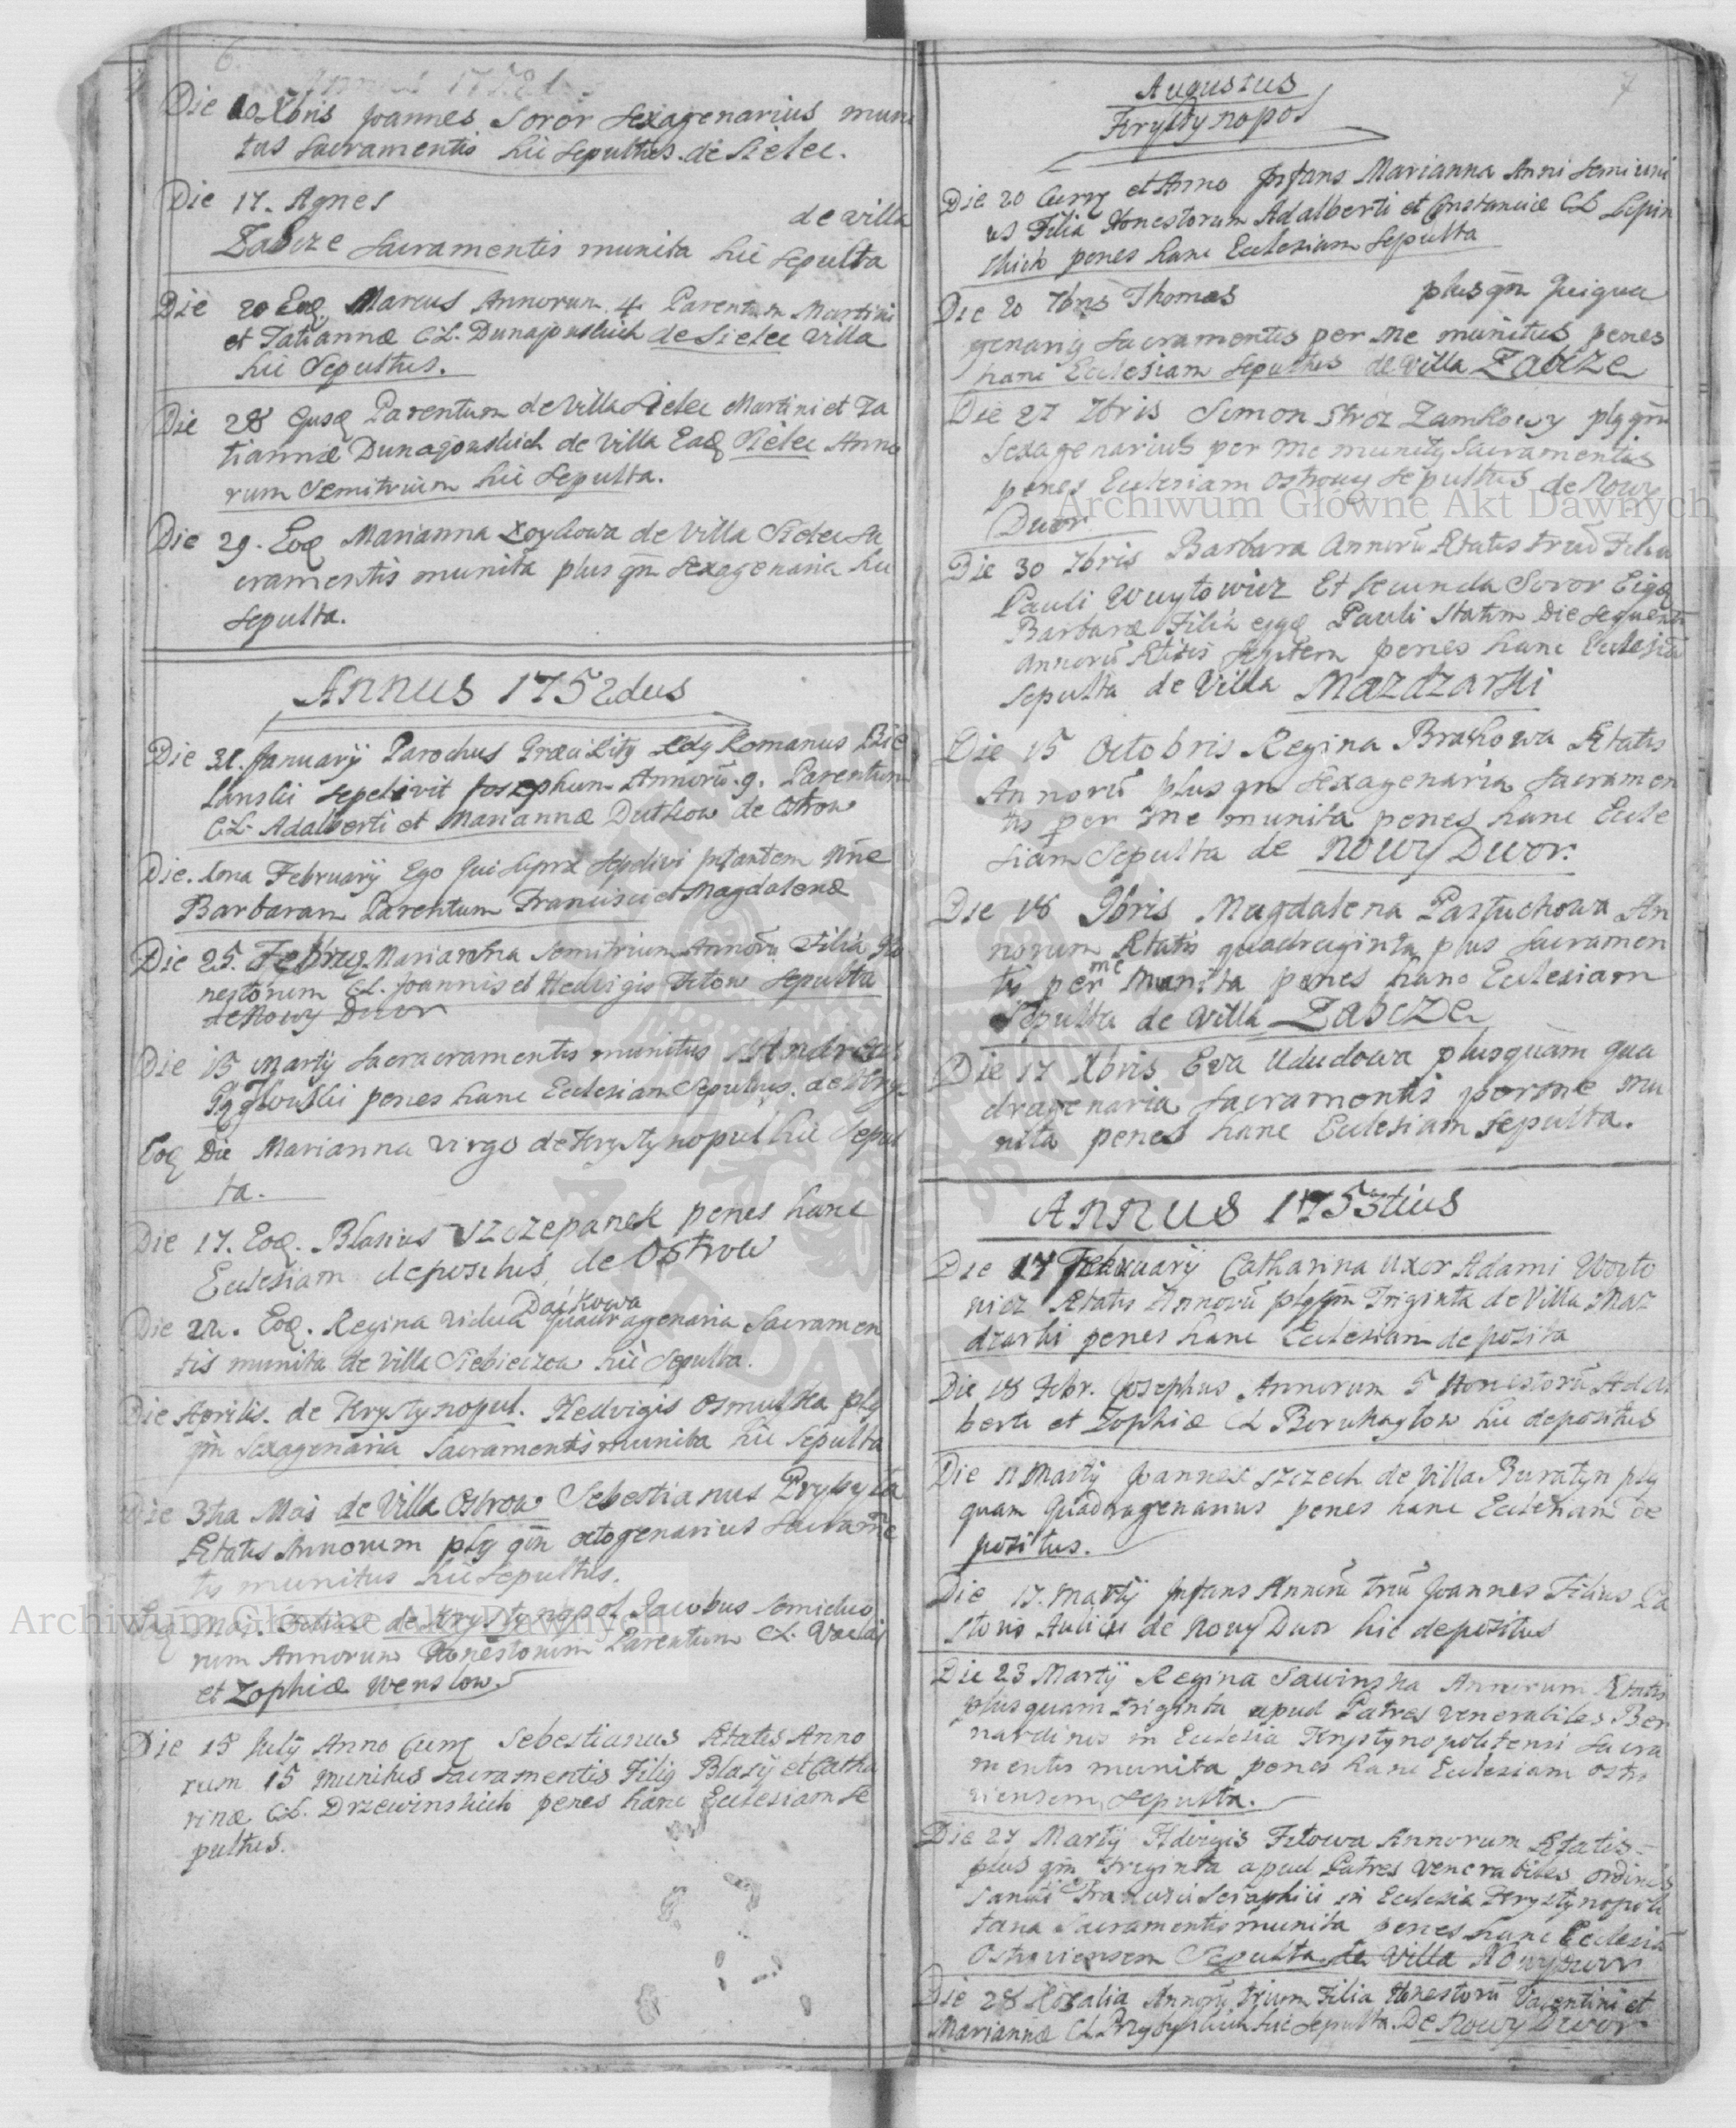 6.
Die 10 Xbris Joannes Soror Sexagenarius muni
tus Sacramentis hic Sepultus de Sielec.
Die 17. Agnes de villa
Zabcze Sacramentis munita hic Sepulta
Die 20 Eoq Marcus Annorum 4 Parentum Martini
et Tatiannæ CL. Dunajowskich de Sielec villa
hic Sepultus.
Die 28 Parentum de Villa Sielec Martini et Ta
tiannæ Dunajowskich de villa Eaq Sielec Anno
rum Semitrium hic Sepulta.
Die 29. Eoq Marianna de Villa Sielec Sa
cramentis munita plus qm Sexagenaria hic
Sepulta.
Annus 1752dus
Die 31. January Parochus Romanus Bie
lanski Sepelivit Josephum Annorū 9. Parentum
CL. Adalberti et Mariannæ Dutkow de Ostrow
Die February Ego qui Supra Sepelivi Infantem Nne
Barbaram Parentum Francisci et Magdalenæ
Die 25. Marianna Semitrium Annorū Filia Ho
nestorum CL. Joannis et Hedvigis Fitow Sepulta
de Nowy Dwor
Die 15 Martij Sacracramentis munitus
penes hanc Ecclesiam Sepultus. de Kry.
Eoq Die Marianna virgo de Krystynopul hic Sepul
ta.
Die 17. Eoq. Blasius Szczepanek penes hanc
Ecclesiam depositus de Ostrow
Daikowa
Die 22. Eoq. Regina vidua quadragenaria Sacramen
tis munita de villa Siebieczow hic Sepulta.
Die Aprilis. de Krystynopul. Hedvigis Osmulska plq
qm Sexagenaria Sacramentis munita hic Sepulta
Die 3tia Maj de Villa Ostrow Sebestianus Przybyla
Ætatis Annorum plq qm octogenarius Sacrame
tis munitus hic Sepultus.
Maj. Filius de Krystynopol Jacobus Semiduo
rum Annorum Honestorum Parentum CL.
et Zophiæ Wenslow.
Die 15 July Anno Curre Sebestianus Ætatis Anno
rum 15 munitus Sacramentis Filiq Blasij et Catha
rinæ CL. Drzewinskich penes hanc Ecclesiam Se
pultus.
7
Augustus
Krystynopol
Die 20 et Anno Infans Marianna Anni
us Filia Honestorum Adalberti et Constanciæ CL
skich penes hanc Ecclesiam Sepulta
Die 20 7bris Thomas plus qm
genariq Sacramentis per me munitus penes
hanc Ecclesiam Sepultus de Villa Zabcze
Die 27 7bris Simon Stroz Zamkowy plq qm
Sexagenarius per me munitq Sacramentis
penes Ecclesiam Ostrowq Sepultus de Nowy
Dwor
Die 30 7bris Barbara Annorū Ætatis triū Filia
Pauli Wuytowicz Et Secunda Soror Ejq
Barbaræ Filia Pauli Statim Die Sequenti
Annorū Ætatis Septem penes hanc Ecclesiā
Sepulta de Villa Mazdzarki
Die 15 Octobris Regina Brakowa Ætatis
Annorū plus qm Sexagenaria Sacramen
tis per me munita penes hanc Eccle
siam Sepulta de Nowy Dwor.
Die 18 9bris Magdalena Pastuchowa An
norum Ætatis quadraginta plus Sacramen
tis per me munita penes hanc Ecclesiam
Sepulta de Villa Zabcze
Die 17 Xbris Eva Ududowa plusquam qua
dragenaria Sacramentis per me mu
nita penes hanc Ecclesiam Sepulta.
Annus 1753tius
Die 17 February Catharina Uxor Adami Woyto
wicz Ætatis Annorū plq qm Triginta de Villa Maz
dzarki penes hanc Ecclesiam deposita
Die 18 Febr. Josephus Annorum 5 Honestorū Adal
berti et Zophiæ CL hic depositus
Die 11 Martij Joannes Szczech de Villa Buratyn plq
quam Quadragenarius penes hanc Ecclesiam de
positus.
Die 17. Martij Infans Annorū triū Joannes Filius
de Nowy Dwor hic depositus
Die 23 Martij Regina Sawinska Annorum Ætatis
plus quam triginta apud Patres venerabiles Ber
nardinos in Ecclesia Krystynopolitensi Sacra
mentis munita penes hanc Ecclesiam Ostro
viensem Sepulta.
Die 27 Martij Hdvigis Fitowa Annorum Ætatis
plus qm triginta apud Patres venerabiles ordinis
Sancti Francisci Seraphici in Ecclesia Krystynopoli
tana Sacramentis munita penes hanc Ecclesiā
Ostroviensem Sepulta de Villa Nowydwor
Die 28 Rosalia Annorū trium Filia Honestorū Valentini et
Mariannæ CL hic Sepulta De Nowy Dwor
Archiwum Główne Akt Dawnych
Archiwum Główne Akt Dawnych